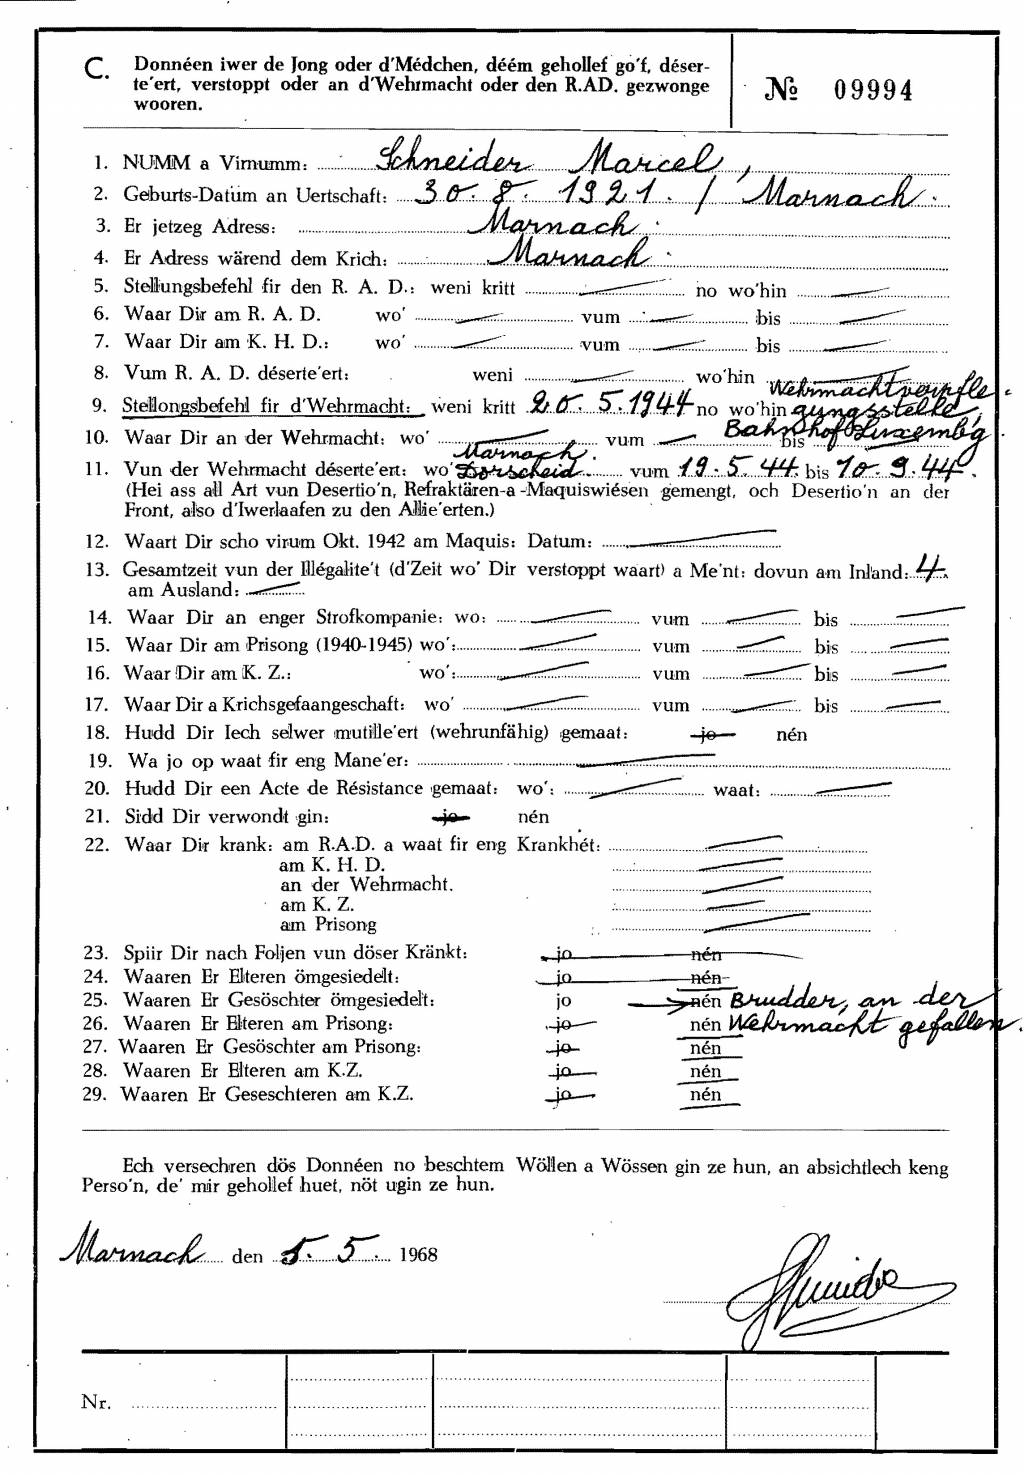 C. Donnéen iwer de Jong oder d'Médchen, déém gehollef go'f, déser-
te'ert, verstoppt oder an d'Wehrmacht oder den R.AD. gezwonge
wooren.
№ 09994
1. NUMM a Virnumm: Schneider Marcel,
2. Geburts-Datum an Uertschaft: 30. 8. 1921. / Marnach.
3. Er jetzeg Adress: Marnach.
4. Er Adress wärend dem Krich: Marnach.
5. Stellungsbefehl fir den R. A. D.: weni kritt no wo'hin
6. Waar Dir am R. A. D. wo' vum bis
7. Waar Dir am K. H. D.: wo' vum bis
8. Vum R. A. D. déserte'ert: weni wo'hin
9. Stellongsbefehl fir d'Wehrmacht: weni kritt 20. 5. 1944 no wo'hin Wehrmachtverpfle-
gungsstelle,
Bahnhof Luxembg.
10. Waar Dir an der Wehrmacht: wo' vum bis
Marnach.
11. Vun der Wehrmacht déserte'ert: wo' Dorscheid vum 19. 5. 44. bis 10. 9. 44.
(Hei ass all Art vun Desertio'n, Refraktären-a-Maquiswiésen gemengt, och Desertio'n an der
Front, also d'Iwerlaafen zu den Allie'erten.)
12. Waart Dir scho virum Okt. 1942 am Maquis: Datum:
13. Gesamtzeit vun der Illégalite't (d'Zeit wo' Dir verstoppt waart) a Me'nt: dovun am Inland: 4.
am Ausland:
14. Waar Dir an enger Strofkompanie: wo: vum bis
15. Waar Dir am Prisong (1940-1945) wo': vum bis
16. Waar Dir am K. Z.: wo': vum bis
17. Waar Dir a Krichsgefaangeschaft: wo' vum bis
18. Hudd Dir Iech selwer mutille'ert (wehrunfähig) gemaat: jo nén
19. Wa jo op waat fir eng Mane'er:
20. Hudd Dir een Acte de Résistance gemaat: wo': waat:
21. Sidd Dir verwondt gin: jo nén
22. Waar Dir krank: am R.A.D. a waat fir eng Krankhét:
am K. H. D.
an der Wehrmacht.
am K. Z.
am Prisong
23. Spiir Dir nach Foljen vun döser Kränkt: jo nén
24. Waaren Er Elteren ömgesiedelt: jo nén
25. Waaren Er Gesöschter ömgesiedelt: jo nén Brudder, an der
26. Waaren Er Elteren am Prisong: jo nén Wehrmacht gefallen.
27. Waaren Er Gesöschter am Prisong: jo nén
28. Waaren Er Elteren am K.Z. jo nén
29. Waaren Er Geseschteren am K.Z. jo nén
Ech versechren dös Donnéen no beschtem Wöllen a Wössen gin ze hun, an absichtlech keng
Perso'n, de' mir gehollef huet, nöt ugin ze hun.
Marnach den 5. 5. 1968
Nr.